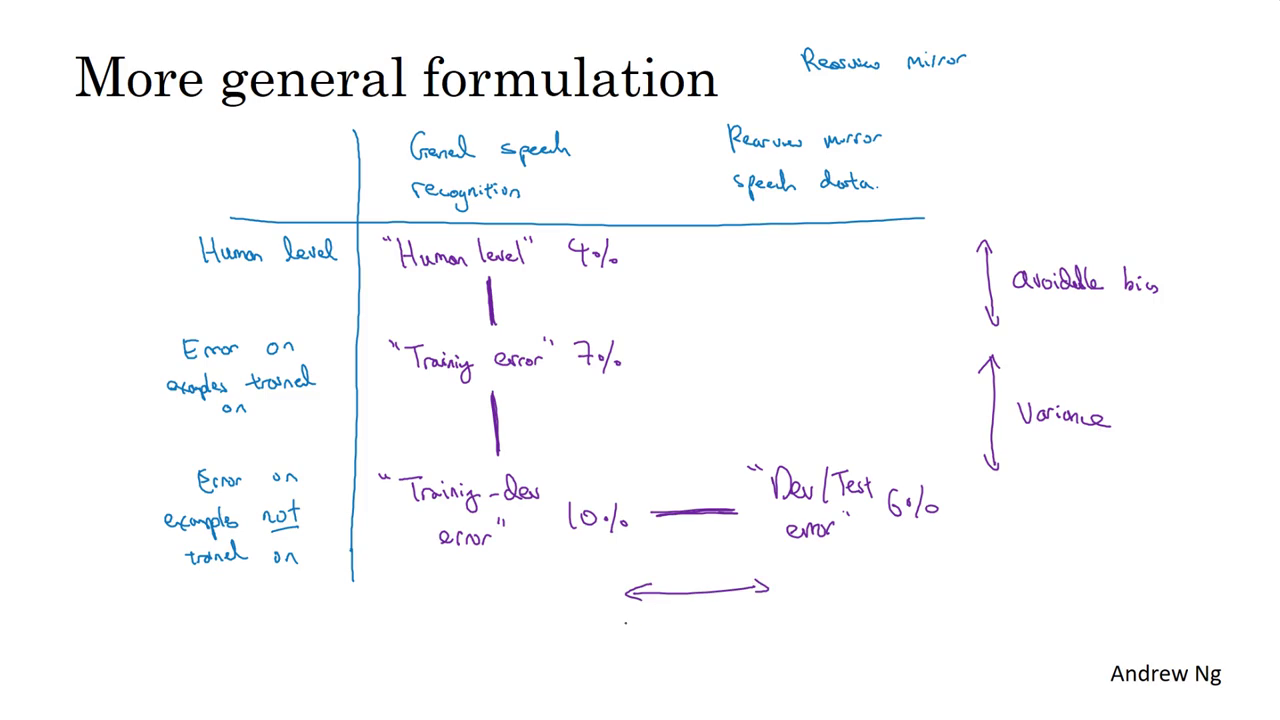 More general formulation
Rearview mirror
General speech
recognition
Rearview mirror
speech data.
Human level
"Human level" 4%
avoidable bias
Error on
examples trained
on
"Training error" 7%
Variance
Error on
examples not
trained on
"Training-dev
error"
10%
"Dev/Test
error"
6%
Andrew Ng